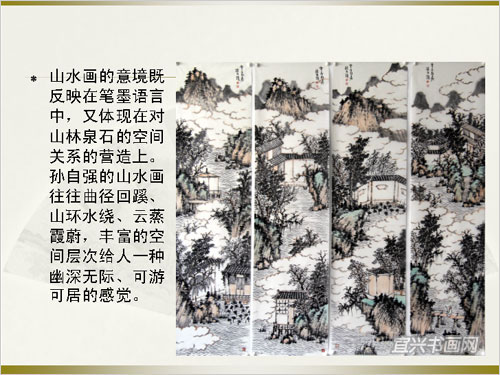 * 山水画的意境既
反映在笔墨语言
中，又体现在对
山林泉石的空间
关系的营造上。
孙自强的山水画
往往曲径回蹊、
山环水绕、云蒸
霞蔚，丰富的空
间层次给人一种
幽深无际、可游
可居的感觉。
宜兴书画网